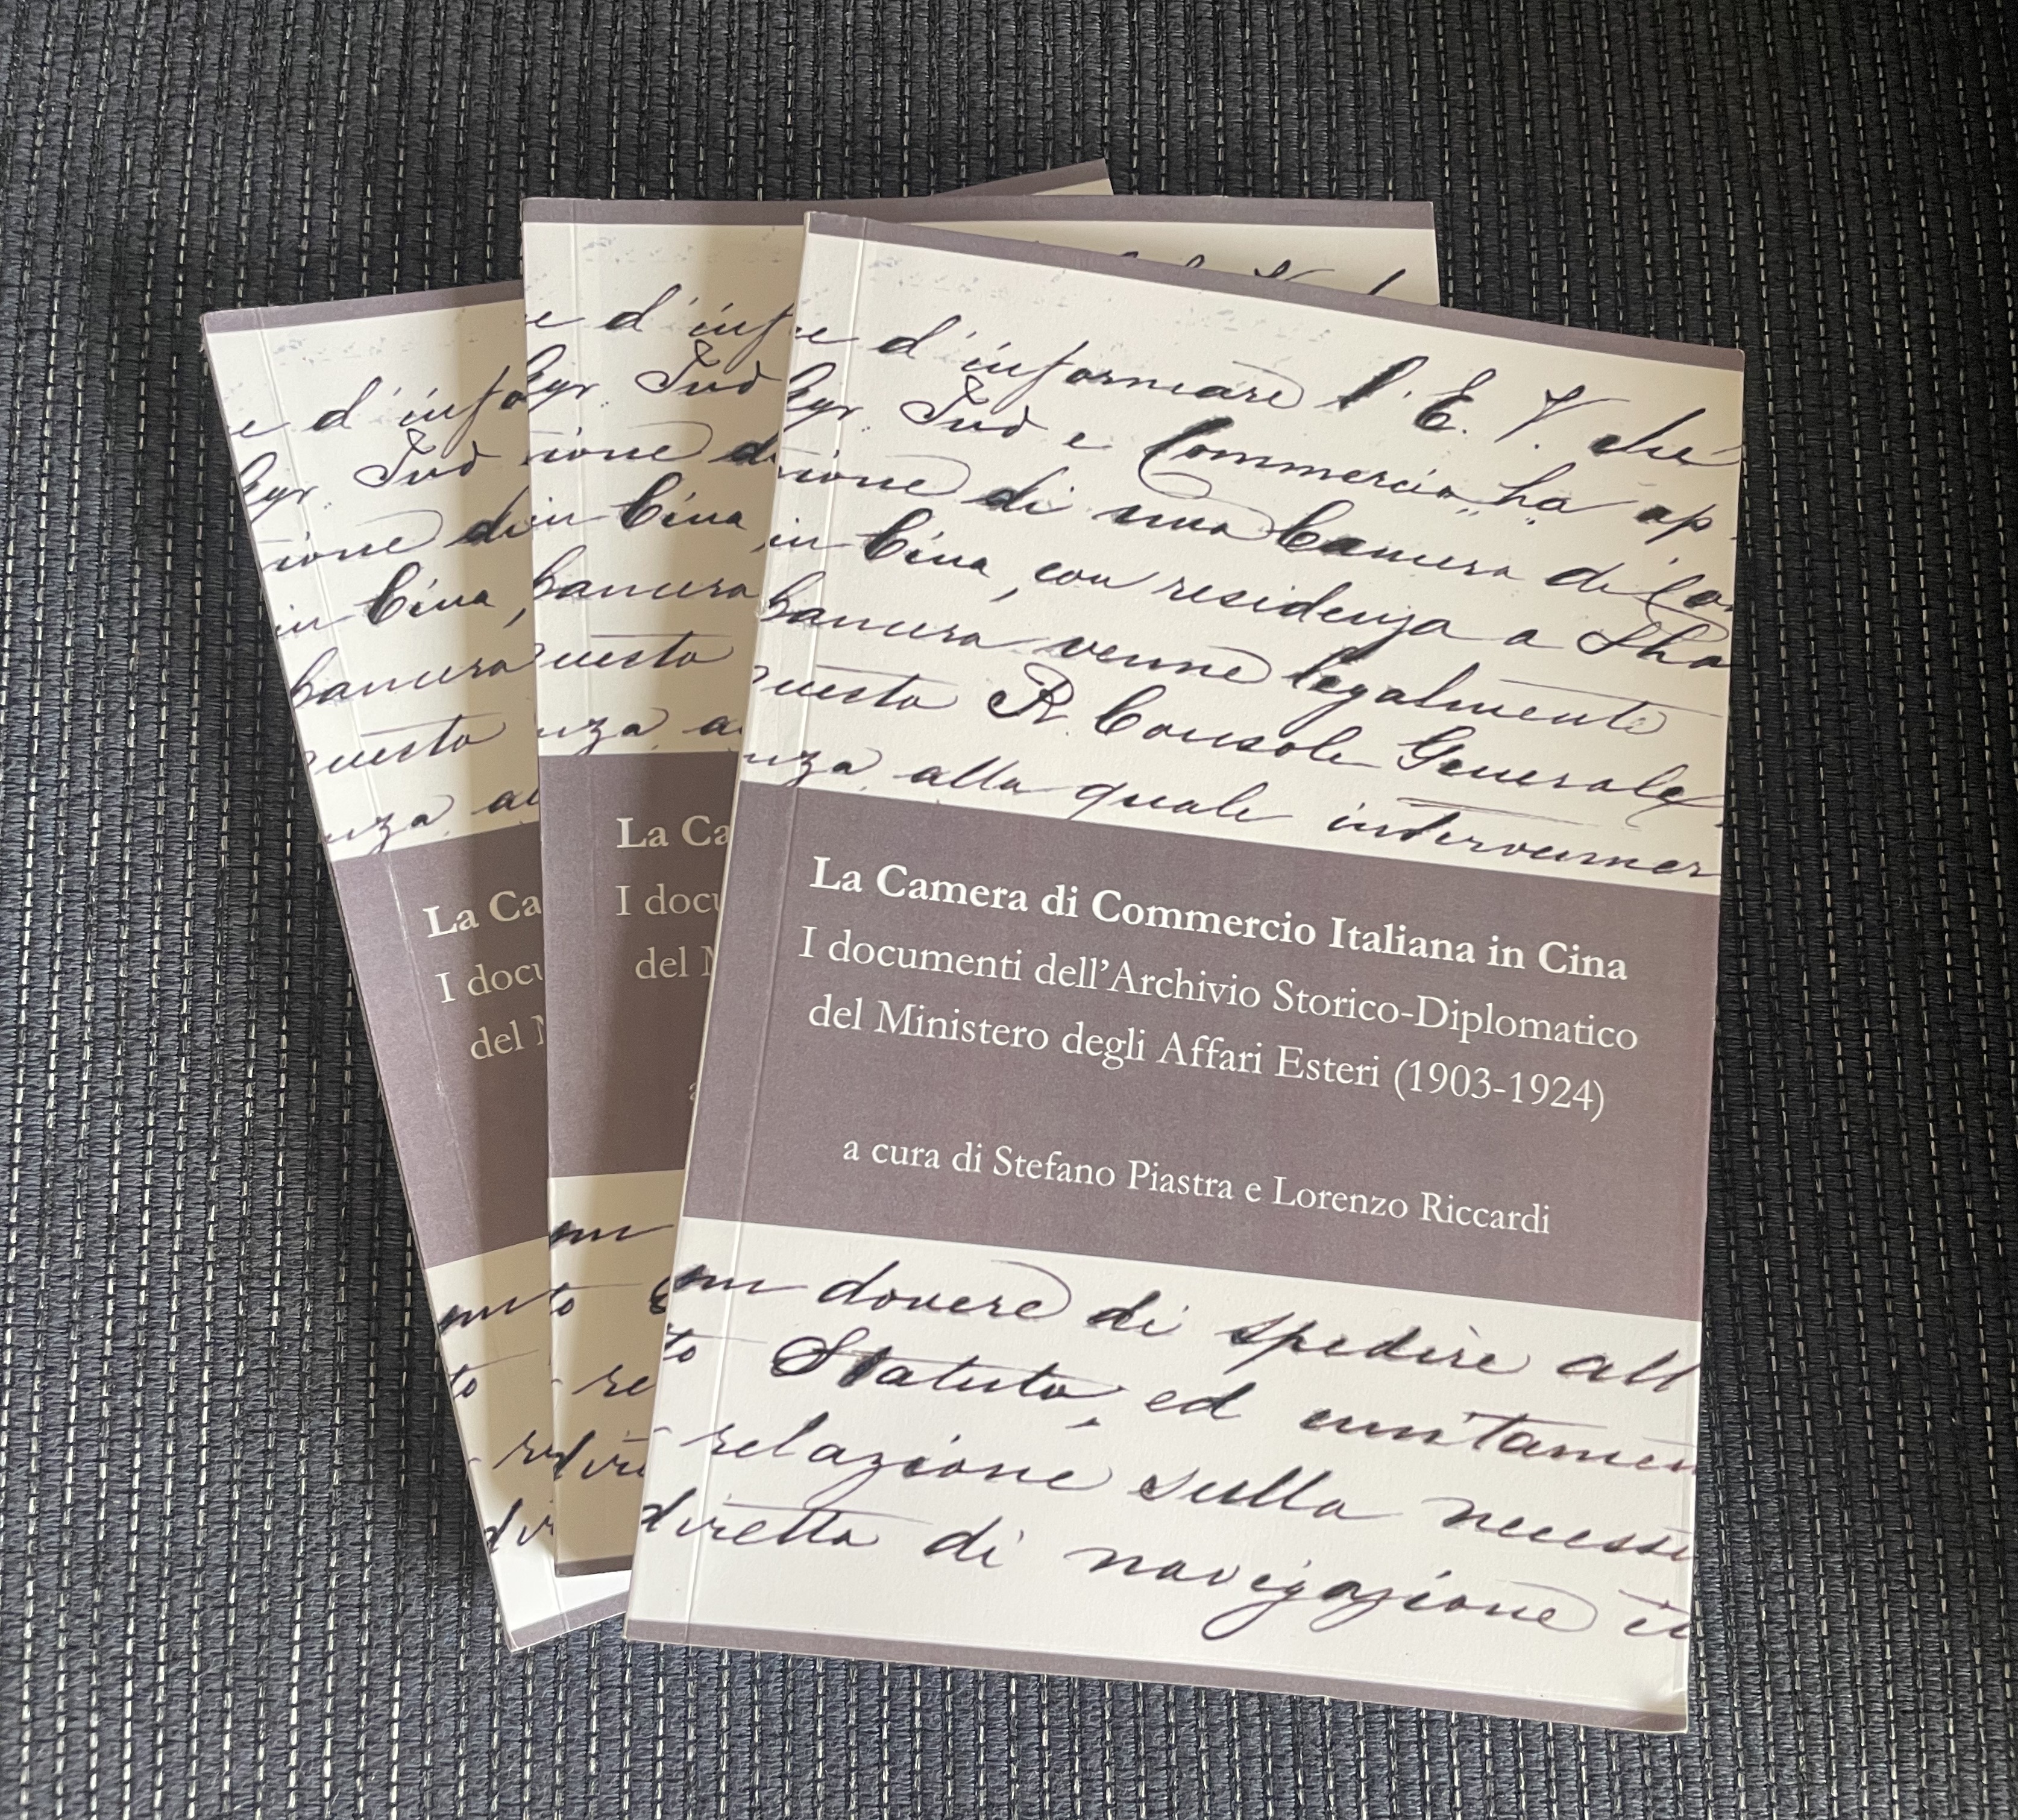 e d'informare l'E. V. che
Agr. Ind e Commercio, ha ap
zione di una Camera di Com
in Cina, con residenza a Sha
Camera venne legalmente
questo R. Console Generale,
nza alla quale intervenner
La Camera di Commercio Italiana in Cina
I documenti dell'Archivio Storico-Diplomatico
del Ministero degli Affari Esteri (1903-1924)
a cura di Stefano Piastra e Lorenzo Riccardi
mi dovere di spedire all
to Statuto, ed unitamen
relazione sulla necessi
diretta di navigazione
e d'inf
Agr. Ind
zione d
in Cina
Camera
questo
nza a
La Ca
I docu
del M
a
re
e d'info
Agr. Ind
zione di
in Cina,
Camera
questo
nza al
La Ca
I docu
del M
to